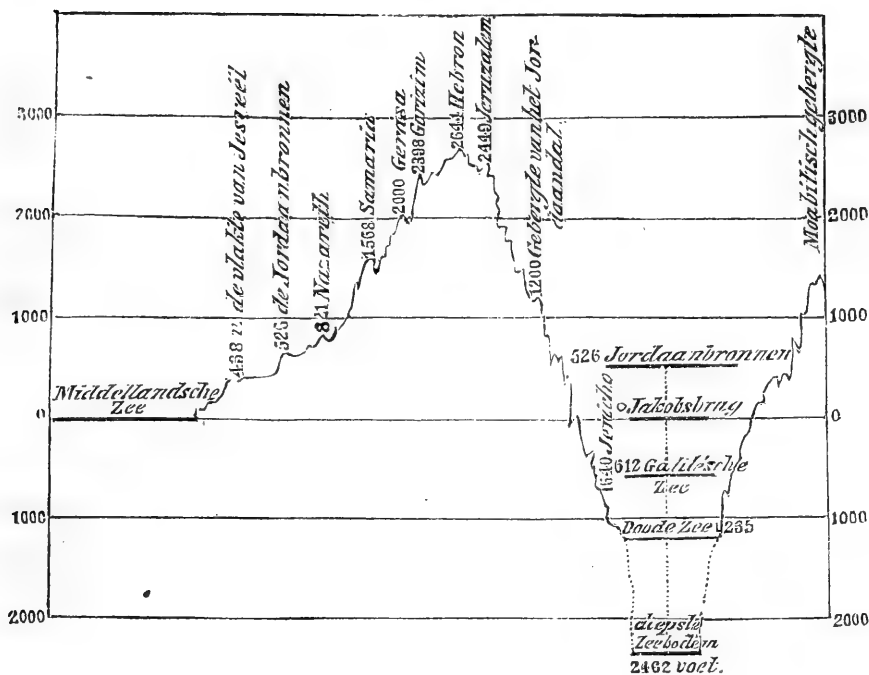 3000
2000
1000
0
1000
2000
Middellandsche
Zee
468 v. de vlakte van Jesreël
526 de Jordaanbronnen
821 Nazareth
1568 Samaria
2000 Gerasa
2398 Garizim
2644 Hebron
2449 Jeruzalem
1200 Gebergte van het Jor-
daandal
Moabitisch gebergte
526 Jordaanbronnen
0 Jakobsbrug
Jericho
612 Galilésche
Zee
Doode Zee 1265
diepste
Zeebodem
2462 voet.
3000
2000
1000
0
1000
2000